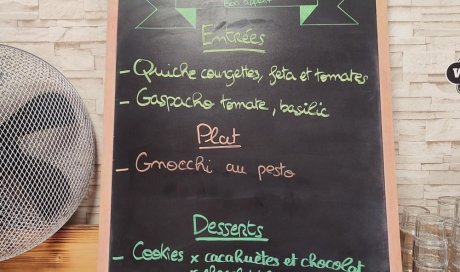 Bon appétit
Entrées
- Quiche courgettes, feta et tomates
- Gaspacho tomate, basilic
Plat
- Gnocchi au pesto
Desserts
- Cookies x cacahuètes et chocolat